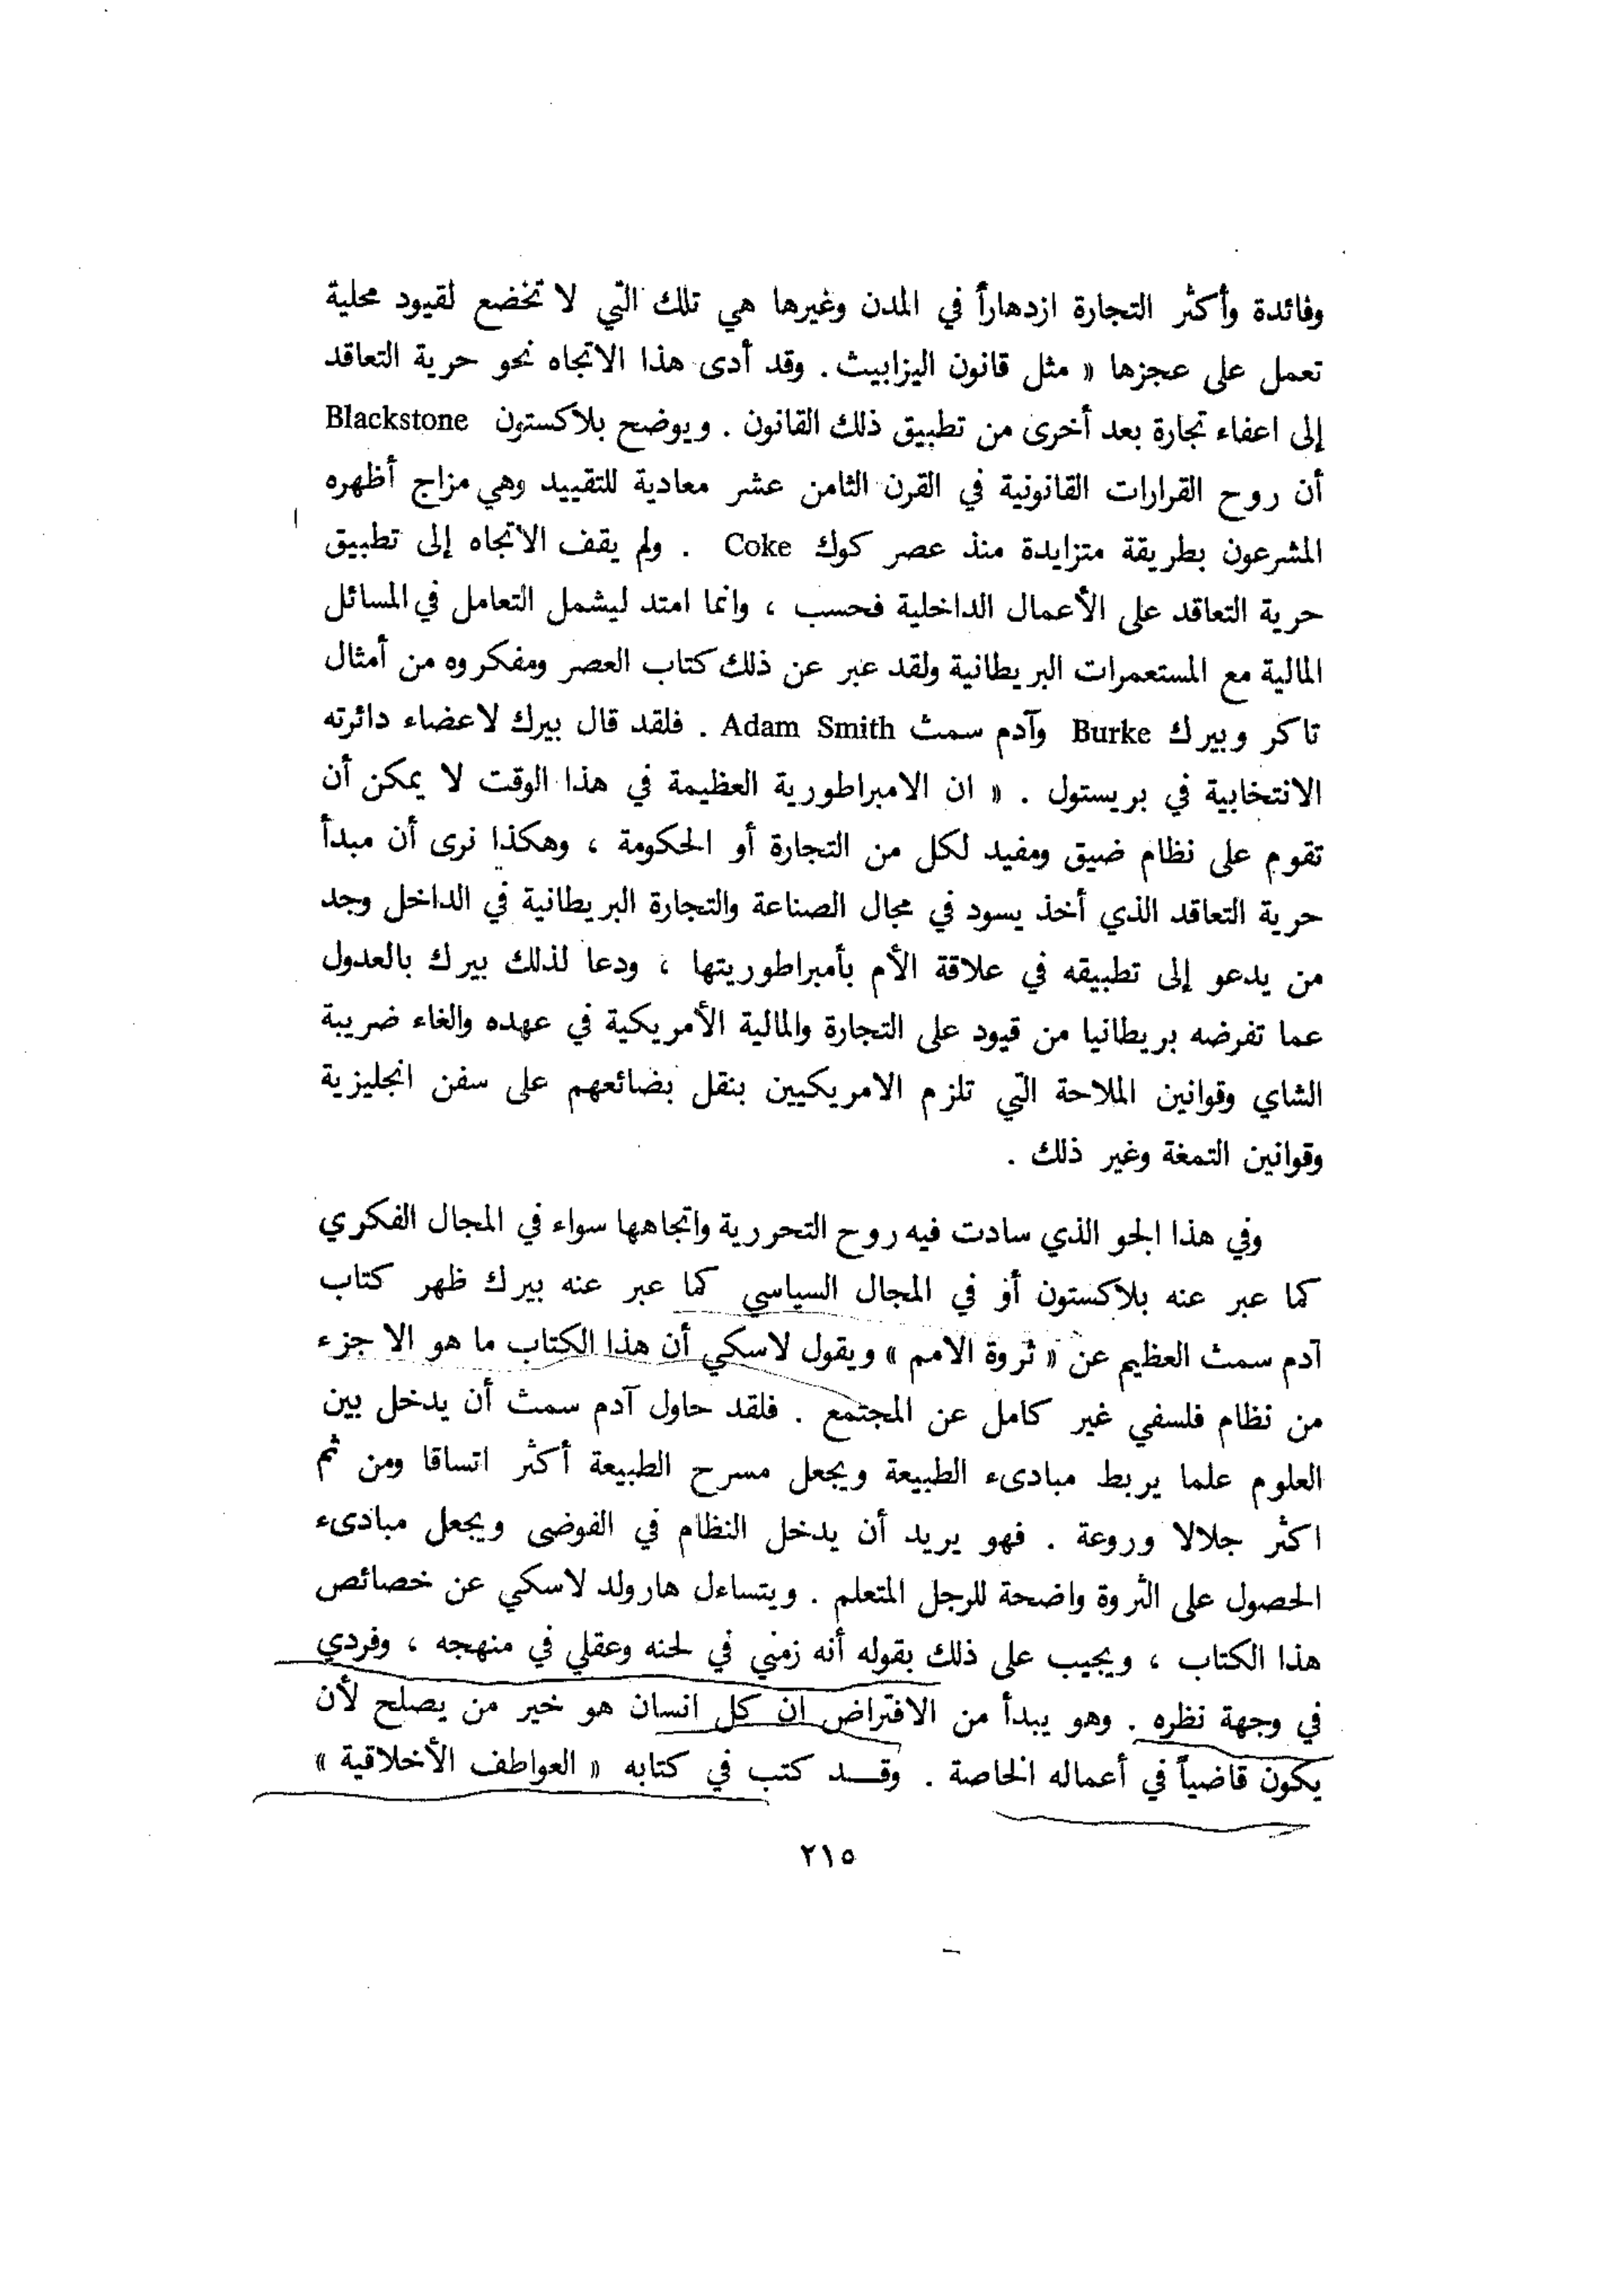 وفائدة وأكثر التجارة ازدهاراً في المدن وغيرها هي تلك التي لا تخضع لقيود محلية
تعمل على عجزها » مثل قانون اليزابيث . وقد أدى هذا الاتجاه نحو حرية التعاقد
إلى اعفاء تجارة بعد أخرى من تطبيق ذلك القانون . ويوضح بلاكستون Blackstone
أن روح القرارات القانونية في القرن الثامن عشر معادية للتقييد وهي مزاج أظهره
المشرعون بطريقة متزايدة منذ عصر كوك Coke . ولم يقف الاتجاه إلى تطبيق
حرية التعاقد على الأعمال الداخلية فحسب ، وانما امتد ليشمل التعامل في المسائل
المالية مع المستعمرات البريطانية ولقد عبر عن ذلك كتاب العصر ومفكروه من أمثال
تاكر وبيرك Burke وآدم سمث Adam Smith . فلقد قال بيرك لاعضاء دائرته
الانتخابية في بريستول . « ان الامبراطورية العظيمة في هذا الوقت لا يمكن أن
تقوم على نظام ضيق ومفيد لكل من التجارة أو الحكومة ، وهكذا نرى أن مبدأ
حرية التعاقد الذي أخذ يسود في مجال الصناعة والتجارة البريطانية في الداخل وجد
من يدعو إلى تطبيقه في علاقة الأم بأمبراطوريتها ، ودعا لذلك بيرك بالعدول
عما تفرضه بريطانيا من قيود على التجارة والمالية الأمريكية في عهده والغاء ضريبة
الشاي وقوانين الملاحة التي تلزم الامريكيين بنقل بضائعهم على سفن انجليزية
وقوانين التمغة وغير ذلك .
وفي هذا الجو الذي سادت فيه روح التحررية واتجاهها سواء في المجال الفكري
كما عبر عنه بلاكستون أو في المجال السياسي كما عبر عنه بيرك ظهر كتاب
آدم سمث العظيم عن « ثروة الامم » ويقول لاسكي أن هذا الكتاب ما هو الا جزء
من نظام فلسفي غير كامل عن المجتمع . فلقد حاول آدم سمث أن يدخل بين
العلوم علما يربط مبادىء الطبيعة ويجعل مسرح الطبيعة أكثر اتساقا ومن ثم
اكثر جلالا وروعة . فهو يريد أن يدخل النظام في الفوضى ويجعل مبادىء
الحصول على الثروة واضحة للرجل المتعلم . ويتساءل هارولد لاسكي عن خصائص
هذا الكتاب ، ويجيب على ذلك بقوله أنه زمني في لحنه وعقلي في منهجه ، وفردي
في وجهة نظره . وهو يبدأ من الافتراض ان كل انسان هو خير من يصلح لأن
يكون قاضياً في أعماله الخاصة . وقــد كتب في كتابه « العواطف الأخلاقية »
٢١٥